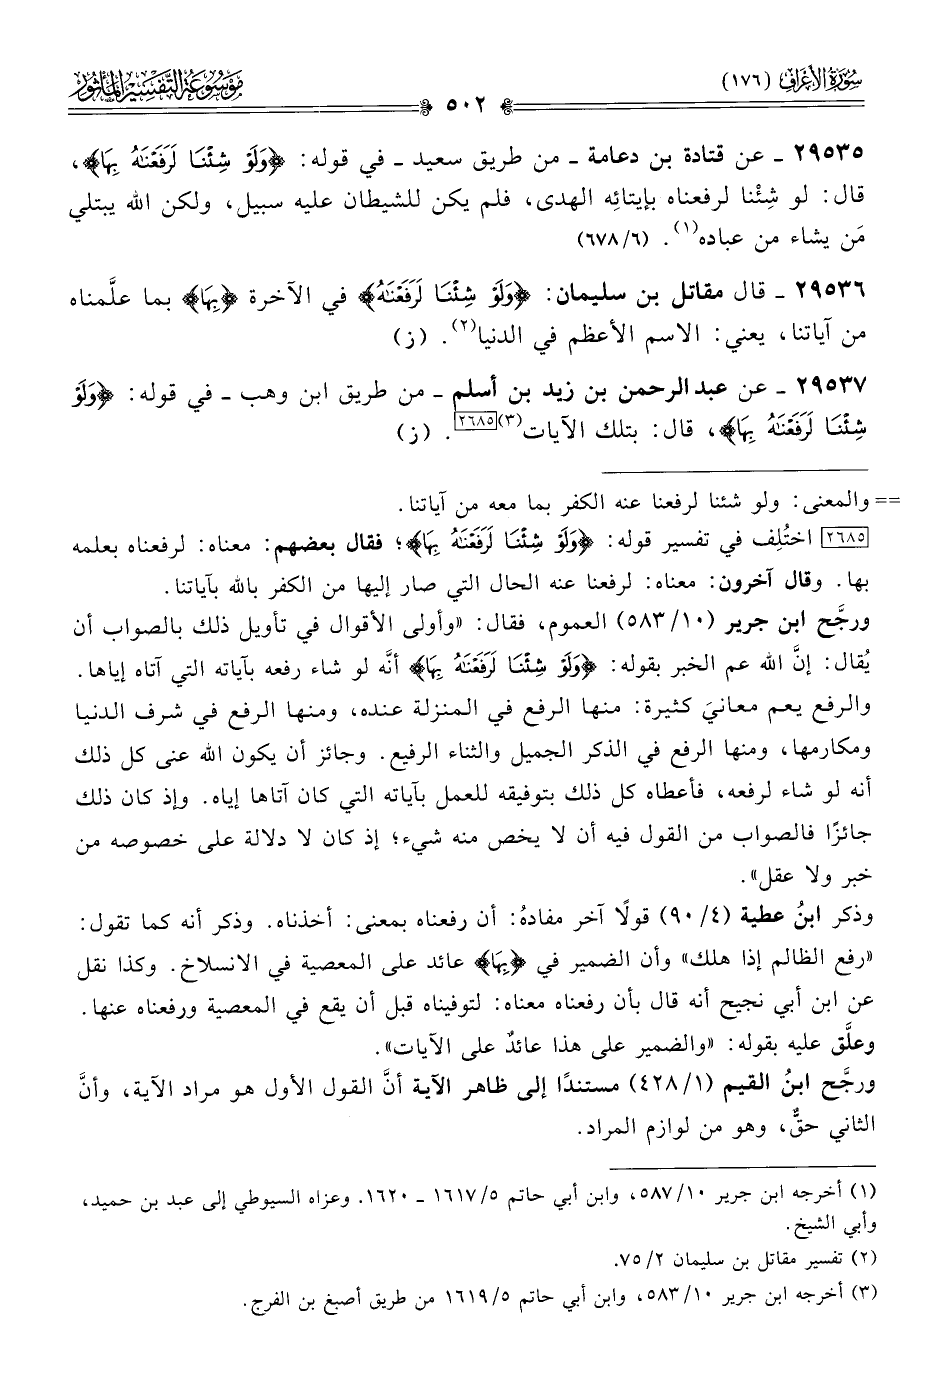 سُورَةُ الأَعْرَافِ (١٧٦)
٥٠٢
مَوْسُوعَةُ التَّفْسِيرِ المَأْثُورِ
٢٩٥٣٥ ـ عن قتادة بن دعامة ـ من طريق سعيد ـ في قوله: ﴿وَلَوْ شِئْنَا لَرَفَعْنَٰهُ بِهَا﴾،
قال: لو شِئْنا لرفعناه بإيتائِه الهدى، فلم يكن للشيطان عليه سبيل، ولكن الله يبتلي
مَن يشاء من عباده(١). (٦/٦٧٨)
٢٩٥٣٦ ـ قال مقاتل بن سليمان: ﴿وَلَوْ شِئْنَا لَرَفَعْنَٰهُ﴾ في الآخرة ﴿بِهَا﴾ بما علَّمناه
من آياتنا، يعني: الاسم الأعظم في الدنيا(٢). (ز)
٢٩٥٣٧ ـ عن عبد الرحمن بن زيد بن أسلم ـ من طريق ابن وهب ـ في قوله: ﴿وَلَوْ
شِئْنَا لَرَفَعْنَٰهُ بِهَا﴾، قال: بتلك الآيات(٣)[٢٦٨٥]. (ز)
== والمعنى: ولو شئنا لرفعنا عنه الكفر بما معه من آياتنا.
[٢٦٨٥] اختُلِف في تفسير قوله: ﴿وَلَوْ شِئْنَا لَرَفَعْنَٰهُ بِهَا﴾؛ فقال بعضهم: معناه: لرفعناه بعلمه
بها. وقال آخرون: معناه: لرفعنا عنه الحال التي صار إليها من الكفر بالله بآياتنا.
ورجَّح ابن جرير (١٠/٥٨٣) العموم، فقال: «وأولى الأقوال في تأويل ذلك بالصواب أن
يُقال: إنَّ الله عم الخبر بقوله: ﴿وَلَوْ شِئْنَا لَرَفَعْنَٰهُ بِهَا﴾ أنَّه لو شاء رفعه بآياته التي آتاه إياها.
والرفع يعم معانيَ كثيرة: منها الرفع في المنزلة عنده، ومنها الرفع في شرف الدنيا
ومكارمها، ومنها الرفع في الذكر الجميل والثناء الرفيع. وجائز أن يكون الله عنى كل ذلك
أنه لو شاء لرفعه، فأعطاه كل ذلك بتوفيقه للعمل بآياته التي كان آتاها إياه. وإذ كان ذلك
جائزًا فالصواب من القول فيه أن لا يخص منه شيء؛ إذ كان لا دلالة على خصوصه من
خبر ولا عقل».
وذكر ابنُ عطية (٤/٩٠) قولًا آخر مفادهُ: أن رفعناه بمعنى: أخذناه. وذكر أنه كما تقول:
«رفع الظالم إذا هلك» وأن الضمير في ﴿بِهَا﴾ عائد على المعصية في الانسلاخ. وكذا نقل
عن ابن أبي نجيح أنه قال بأن رفعناه معناه: لتوفيناه قبل أن يقع في المعصية ورفعناه عنها.
وعلَّق عليه بقوله: «والضمير على هذا عائدٌ على الآيات».
ورجَّح ابنُ القيم (١/٤٢٨) مستندًا إلى ظاهر الآية أنَّ القول الأول هو مراد الآية، وأنَّ
الثاني حقٌّ، وهو من لوازم المراد.
(١) أخرجه ابن جرير ١٠/٥٨٧، وابن أبي حاتم ٥/١٦١٧ ـ ١٦٢٠. وعزاه السيوطي إلى عبد بن حميد،
وأبي الشيخ.
(٢) تفسير مقاتل بن سليمان ٢/٧٥.
(٣) أخرجه ابن جرير ١٠/٥٨٣، وابن أبي حاتم ٥/١٦١٩ من طريق أصبغ بن الفرج.